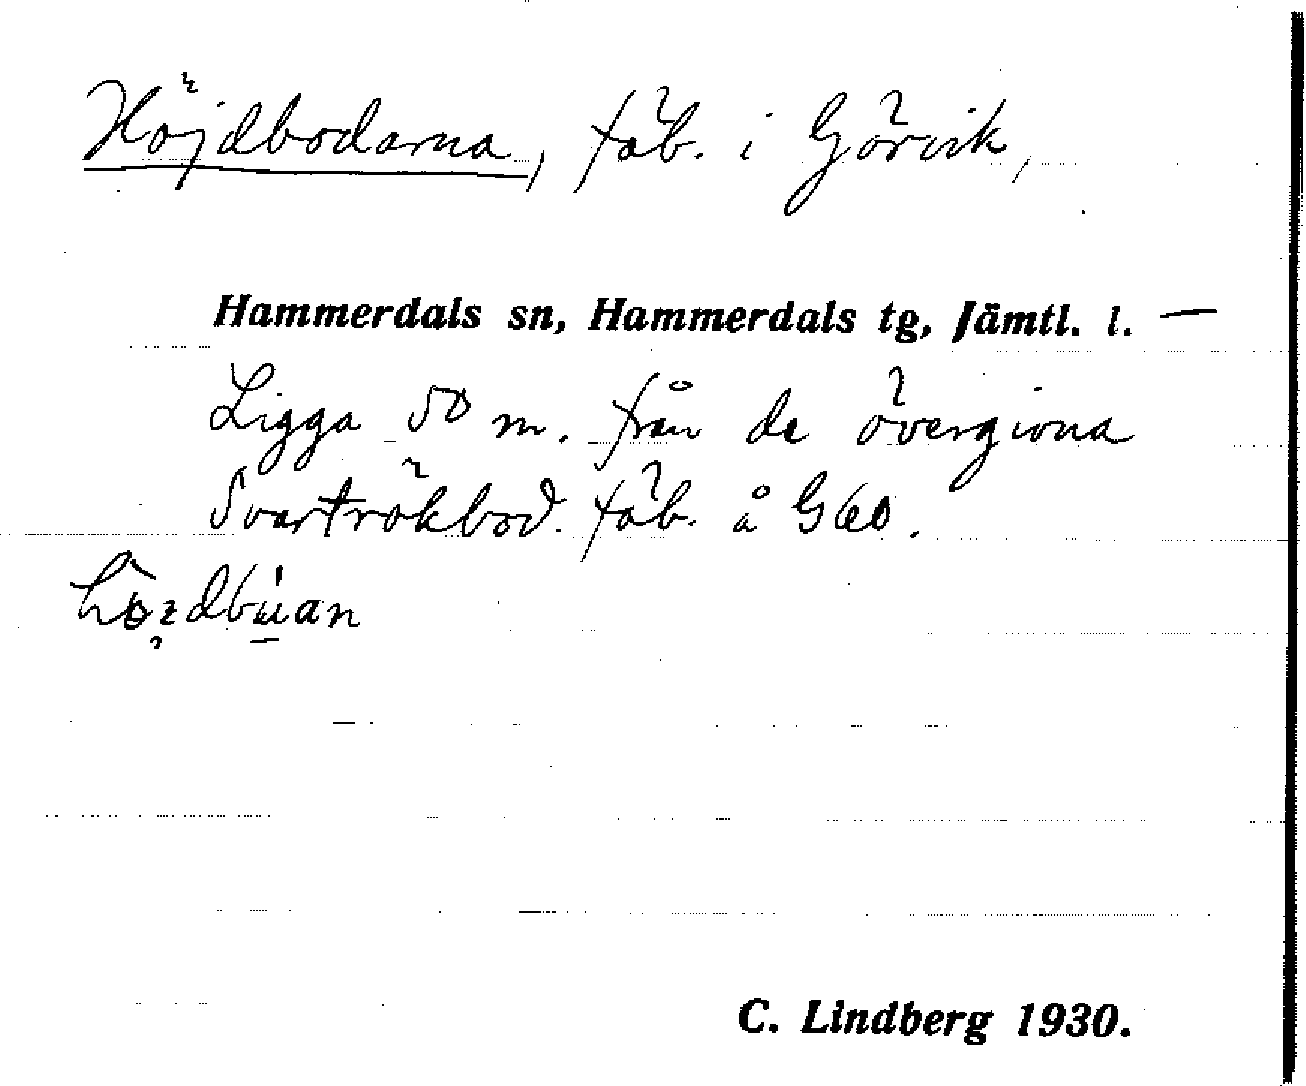 Höjdbodarna, fäb. i Görvik,
Hammerdals sn, Hammerdals tg, Jämtl. l. —
Ligga 50 m. från de övergivna
Svartrökbod. fäb. å G60.
C. Lindberg 1930.